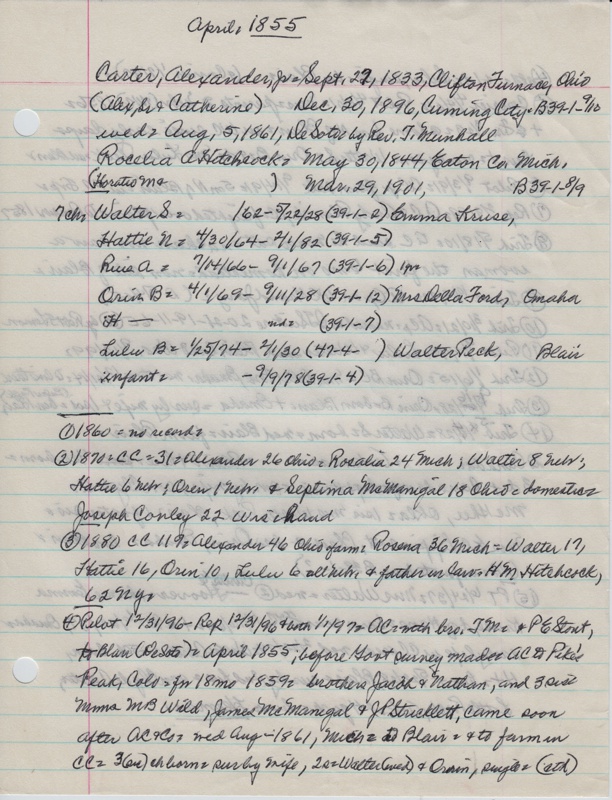 April, 1855
Carter, Alexander, Jr = Sept. 27, 1833, Clifton Furnace, Ohio
(Alex, Sr & Catherine) Dec, 30, 1896, Cuming City, B39-1-9/10
wed = Aug, 5, 1861, DeSoto by Rev. T. Munhall
Rosalia A Hitchcock = May 30, 1844, Eaton Co, Mich,
(Horatio M & ) Mar. 29, 1901, B39-1-8/9
7 ch: Walter S = /62 - 5/22/28 (39-1-2) Emma Kruse,
Hattie N = 4/30/64 - 2/1/82 (39-1-5)
A = 7/14/66 - 9/1/67 (39-1-6)
Orin B = 4/1/69 - 9/11/28 (39-1-12) Mrs Della Ford, Omaha
H — nd = (39-1-7)
Lulu B = 1/25/74 - 2/1/30 (47-4- ) Walter Peck, Blair
infant = - 9/9/78 (39-1-4)
① 1860 = no record =
② 1870 = CC = 31 = Alexander 26 Ohio = Rosalia 24 Mich; Walter 8 Nebr;
Hattie 6 Nebr; Oren 1 Nebr & Septima McManigal 18 Ohio = domestic =
Joseph Conley 22 Wis = hand
③ 1880 CC 119 = Alexander 46 Ohio farm = Rosena 36 Mich = Walter 17,
Hattie 16, Orin 10, Lulu 6 all Nebr, & father in law = H M Hitchcock,
62 Ny =
④ Pilot 12/31/96 - Rep 12/31/96 & both 1/7/97 = AC = with bro. J M = & P E Stout,
to Blair (DeSoto) = April 1855, before Govt survey made = AC to Pike's
Peak, Colo = for 18 mo 1859 = brothers Jacob & Nathan, and 3 sis =
Mmes M B Wild, James McManigal & J P Stricklett, came soon
after AC & Co = wed Aug - 1861, = to Blair = & to farm in
CC = 3 (sic) ch born = sur by wife, 2 s = Walter (wed) & Orrin, single = (oth)